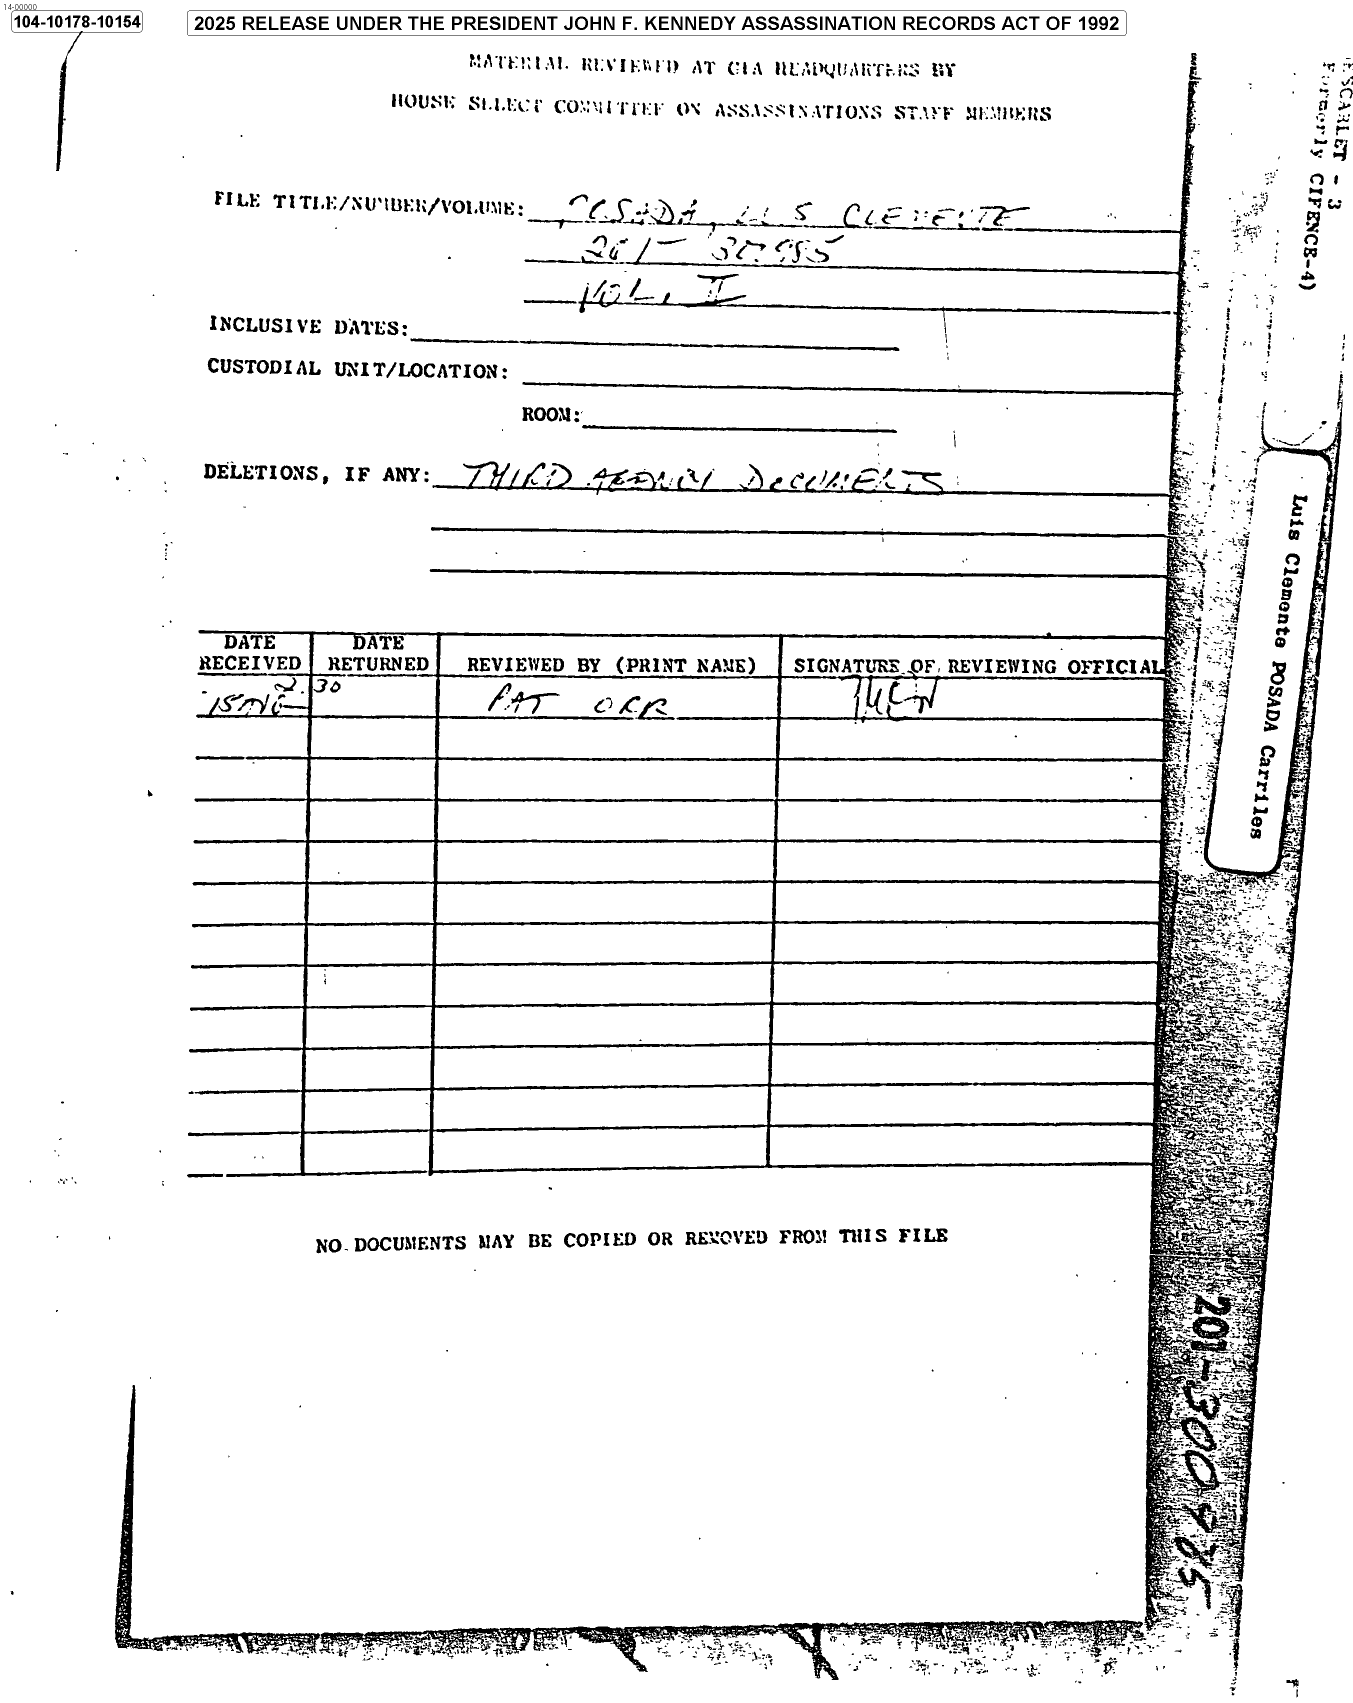 14-00000
104-10178-10154
2025 RELEASE UNDER THE PRESIDENT JOHN F. KENNEDY ASSASSINATION RECORDS ACT OF 1992
MATERIAL REVIEWED AT CIA HEADQUARTERS BY
HOUSE SELECT COMMITTEE ON ASSASSINATIONS STAFF MEMBERS
FILE TITLE/NUMBER/VOLUME: POSADA, LUIS CLEMENTE
201-
VOL. II
INCLUSIVE DATES:
CUSTODIAL UNIT/LOCATION:
ROOM:
DELETIONS, IF ANY: THIRD AGENCY DOCUMENTS
DATE RECEIVED DATE RETURNED REVIEWED BY (PRINT NAME) SIGNATURE OF REVIEWING OFFICIAL
PAT ORR
NO DOCUMENTS MAY BE COPIED OR REMOVED FROM THIS FILE
SCARLET - 3
Formerly CIFENCE-4)
Luis Clemente POSADA Carriles
201-300985